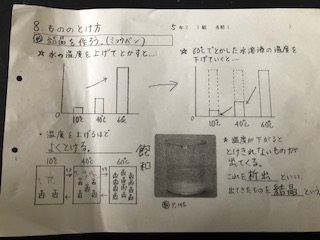 8. もののとけ方
5年( )組 名前( )
結晶を作ろう。(ミョウバン)
☆水の温度を上げてとかすと…
10℃ 40℃ 60℃
☆60℃でとかした水溶液の温度を
下げていくと…
10℃ 40℃ 60℃
・温度を上げるほど
よくとける。
10℃ 40℃ 60℃
飽和
P.145
☆温度が下がると
とけきれないものが
出てくる。
これを析出といい、
出てきたものを結晶という。